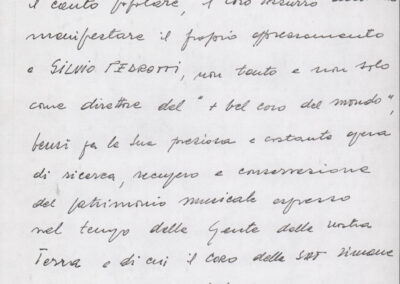 il canto popolare, il coro
manifestare il proprio apprezzamento
a SILVIO PEDROTTI, non tanto e non solo
come direttore del "+ bel coro del mondo",
bensì per la Sua preziosa e costante opera
di ricerca, recupero e conservazione
del patrimonio musicale espresso
nel tempo dalla Gente della nostra
Terra e di cui il coro della SAT rimane